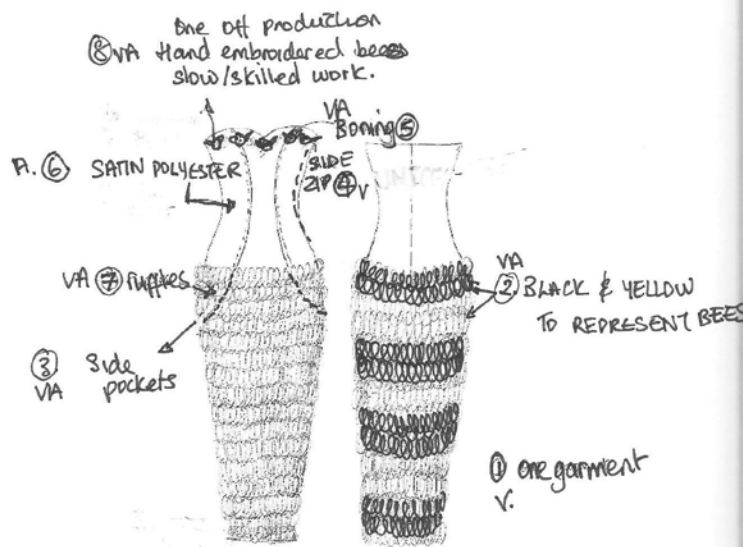 One off production
⑧ VA Hand embroidered bees
slow/skilled work.
VA
Boning ⑤
A. ⑥ SATIN POLYESTER
SIDE
ZIP ④ V
VA ⑦ ruffles
VA
②. BLACK & YELLOW
TO REPRESENT BEES
③ Side
VA pockets
① one garment
V.